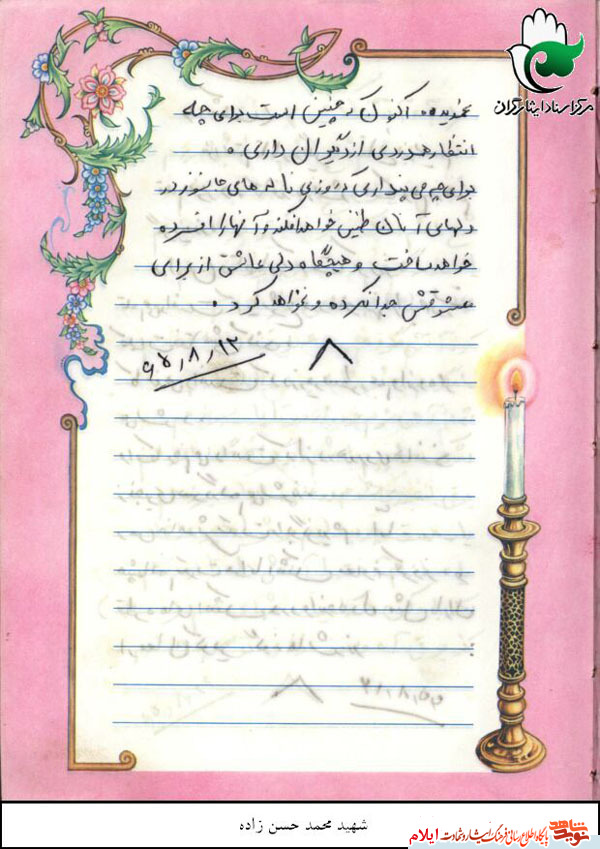 مرکز اسناد ایثارگران
اکنون که چنین است برای چه
انتظار همدردی از دیگران داری.
برای چه می‌پنداری که روزی ناله‌های جانسوز در
دلهای آنان طنین خواهد افکند و آنها را افسرده
خواهد ساخت و هیچگاه دلی عاشق از برای
معشوقش جدا نکرده و نخواهد کرد.
۸
۶۵٫۸٫۱۲
شهید محمد حسن زاده
نوید شاهد
پایگاه اطلاع رسانی فرهنگ ایثار و شهادت ایلام